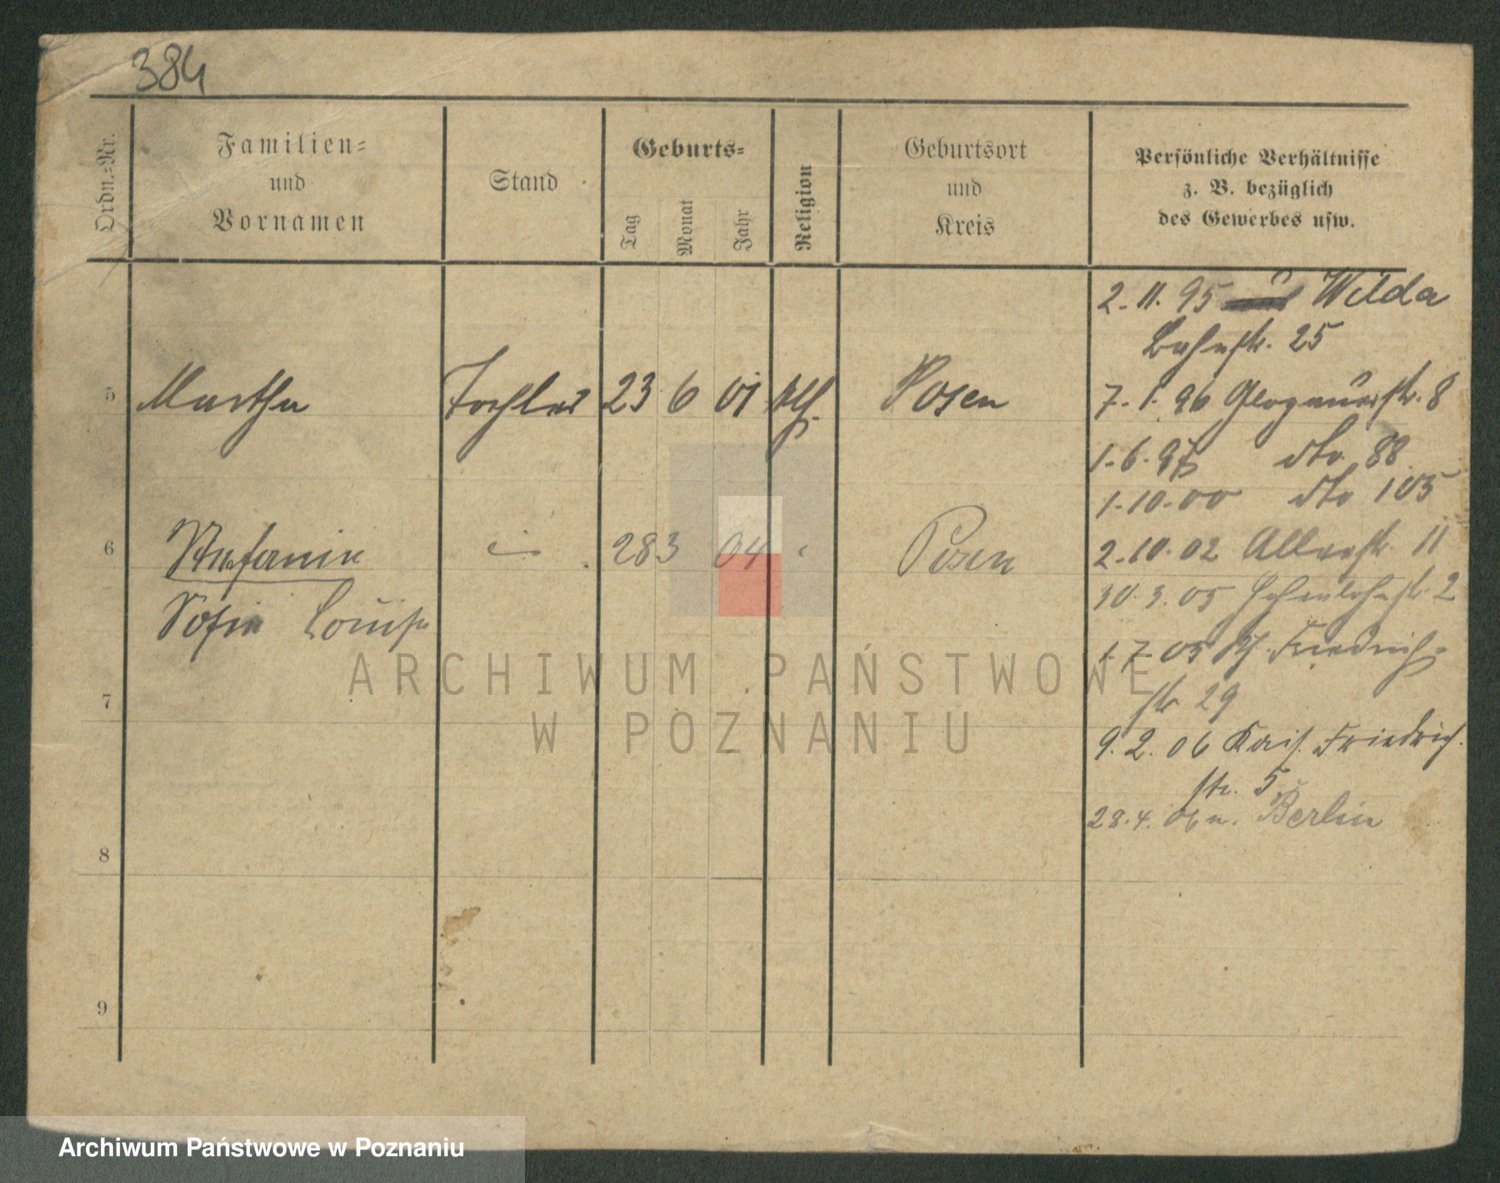 384
Ordn.-Nr.
Familien-
und
Vornamen
Stand
Geburts-
Tag
Monat
Jahr
Religion
Geburtsort
und
Kreis
Persönliche Verhältnisse
z. B. bezüglich
des Gewerbes usw.
2. 11. 95 Wilda
25
5 Martha Tochter 23 6 01 Posen
7. 1. 96 Glogauerstr. 8
1. 6. 97 dto 88
1. 10. 00 dto 105
6 Stefanie 28 3 04 Posen
2. 10. 02 11
Sofie Louise
30. 3. 05 2
1. 7. 05 Friedrich-
str 29
7
9. 2. 06 Kais. Friedrich-
str. 5
28. 4. 06 n. Berlin
8
9
ARCHIWUM PAŃSTWOWE
W POZNANIU
Archiwum Państwowe w Poznaniu